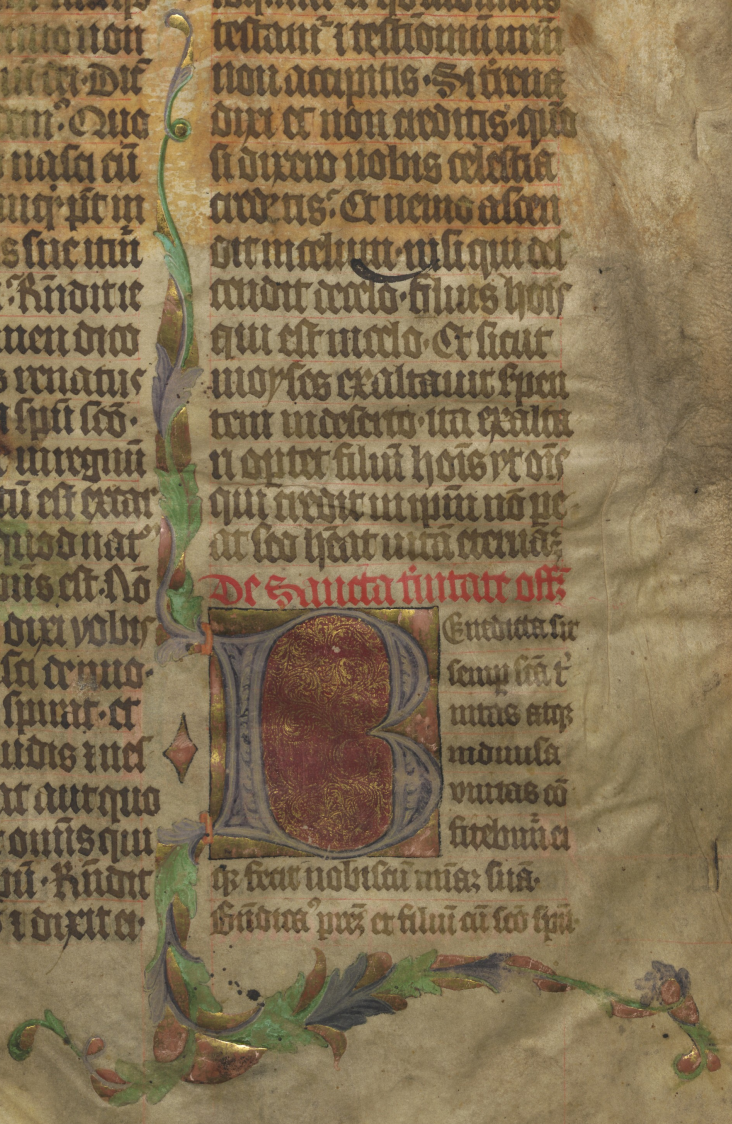 non
Quo
nasci cū
pōt in
sue itū
R̄ndit ie
dico
renatus
spū sc̄o·
in regnū
est ex car
quod nat᷒
est. No
dixi vobis
denuo·
spirat· et
⁊ nes
aut quo
qui
R̄ndit
⁊ dixit ei·
testam᷒ ⁊ testīoniū nr̄m
non accipitis· Si terrena
dixi et non creditis· quō
si dixero uobis celestia
credetis? Et nemo ascen
dit in celum· nisi qui des
cendit de celo· filius hoīs
qui est in celo· Et sicut
moyses exaltauit serpen
tem in deserto· ita exalta
ri oportet filiū hoīs vt oīs
qui credit in ip̄m nō pe
at sed hēat uitā eternā:
De Sancta tinitate offꝫ
Benedicta sit
semꝑ sc̄a t᷒
nitas atqꝫ
indiuisa
vnitas cō
fitebim᷒ ei
qꝫ fecit nobiscū mīaꝫ suā·
Bn̄dica᷒ prēꝫ et filiū cū sc̄o spū·